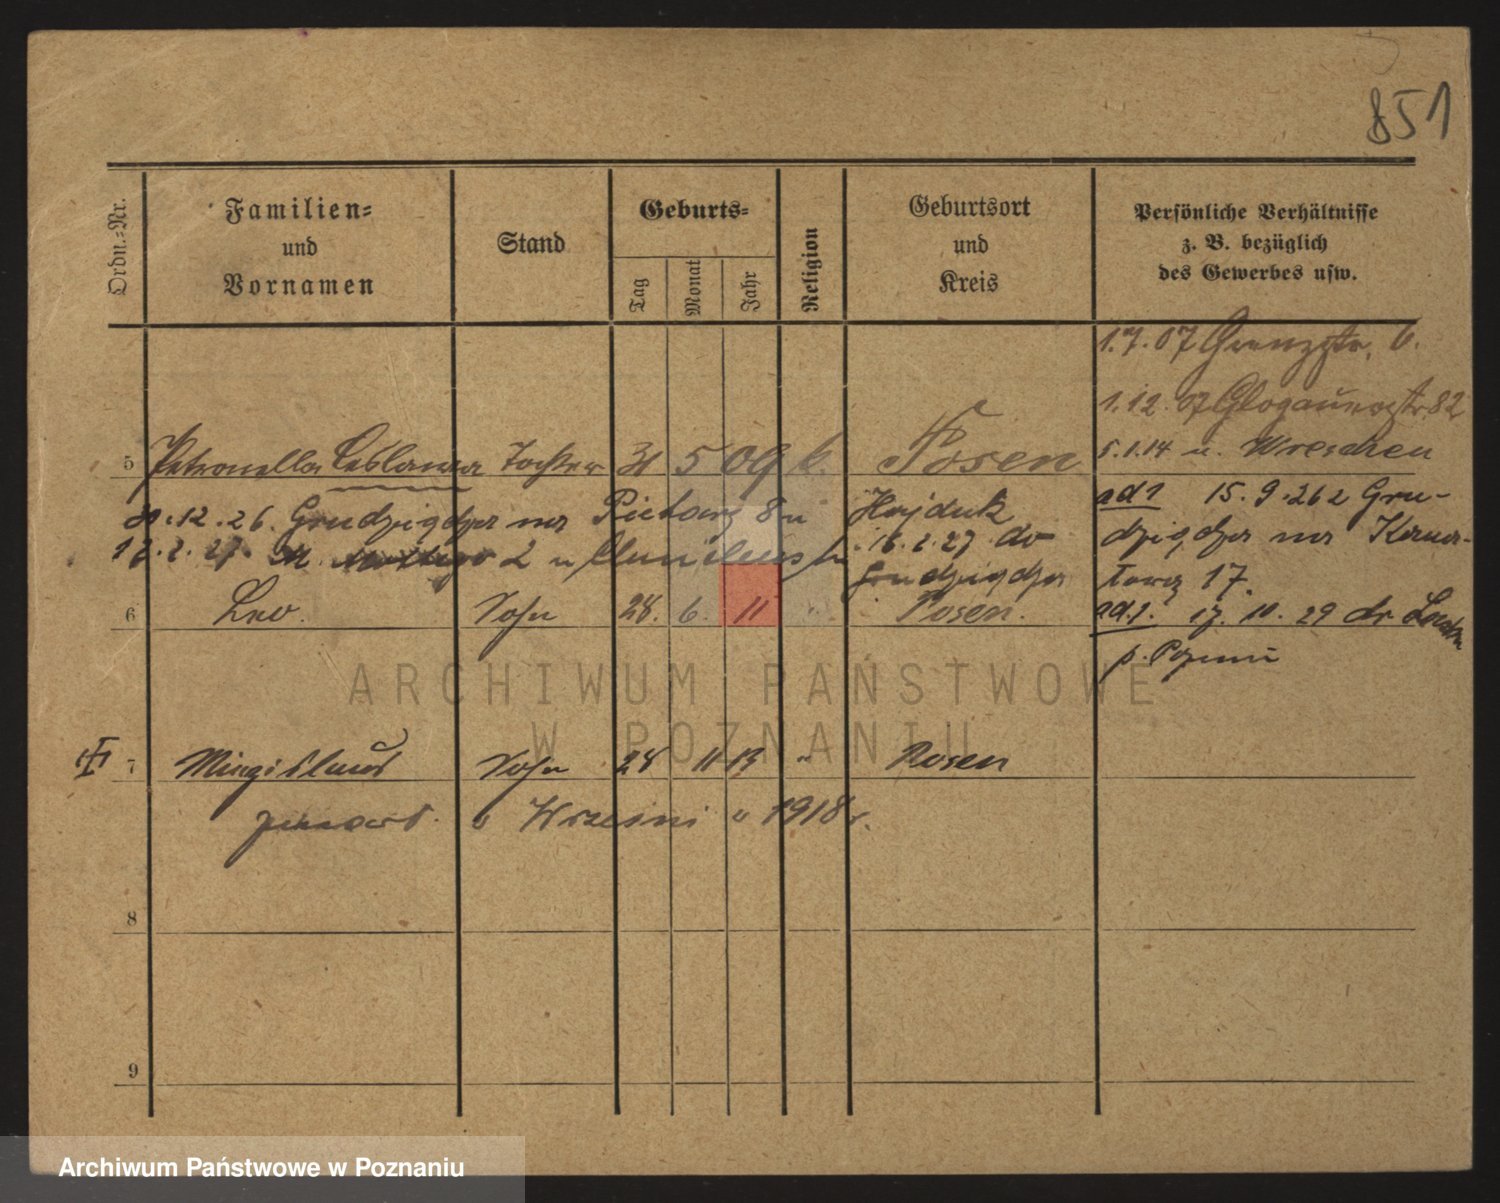 851
Ordn.-Nr.
Familien-
und
Vornamen
Stand
Geburts-
Tag
Monat
Jahr
Religion
Geburtsort
und
Kreis
Persönliche Verhältnisse
z. B. bezüglich
des Gewerbes usw.
1.7.07 Grenzstr. 6.
1.12.07 Glogauerstr. 82
5 Petronella Tochter 31 5 09 k. Posen 5.1.14 n. Wreschen
ad 1 15.9.26 z Gru-
30.12.26. Grudziądza na 8 u Hajduk
dziądza na
17.2.27 2 u 16.2.27 do
Grudziądza
17.
6 Leo. Sohn 28. 6. 11 " Posen. ad.1. 17. 10. 29 do
p. Poznań
ARCHIWUM PAŃSTWOWE
W POZNANIU
7 Miezislaus Sohn 28 11 13 " Posen
zmarł w Wrześni w 1918 r.
8
9
Archiwum Państwowe w Poznaniu